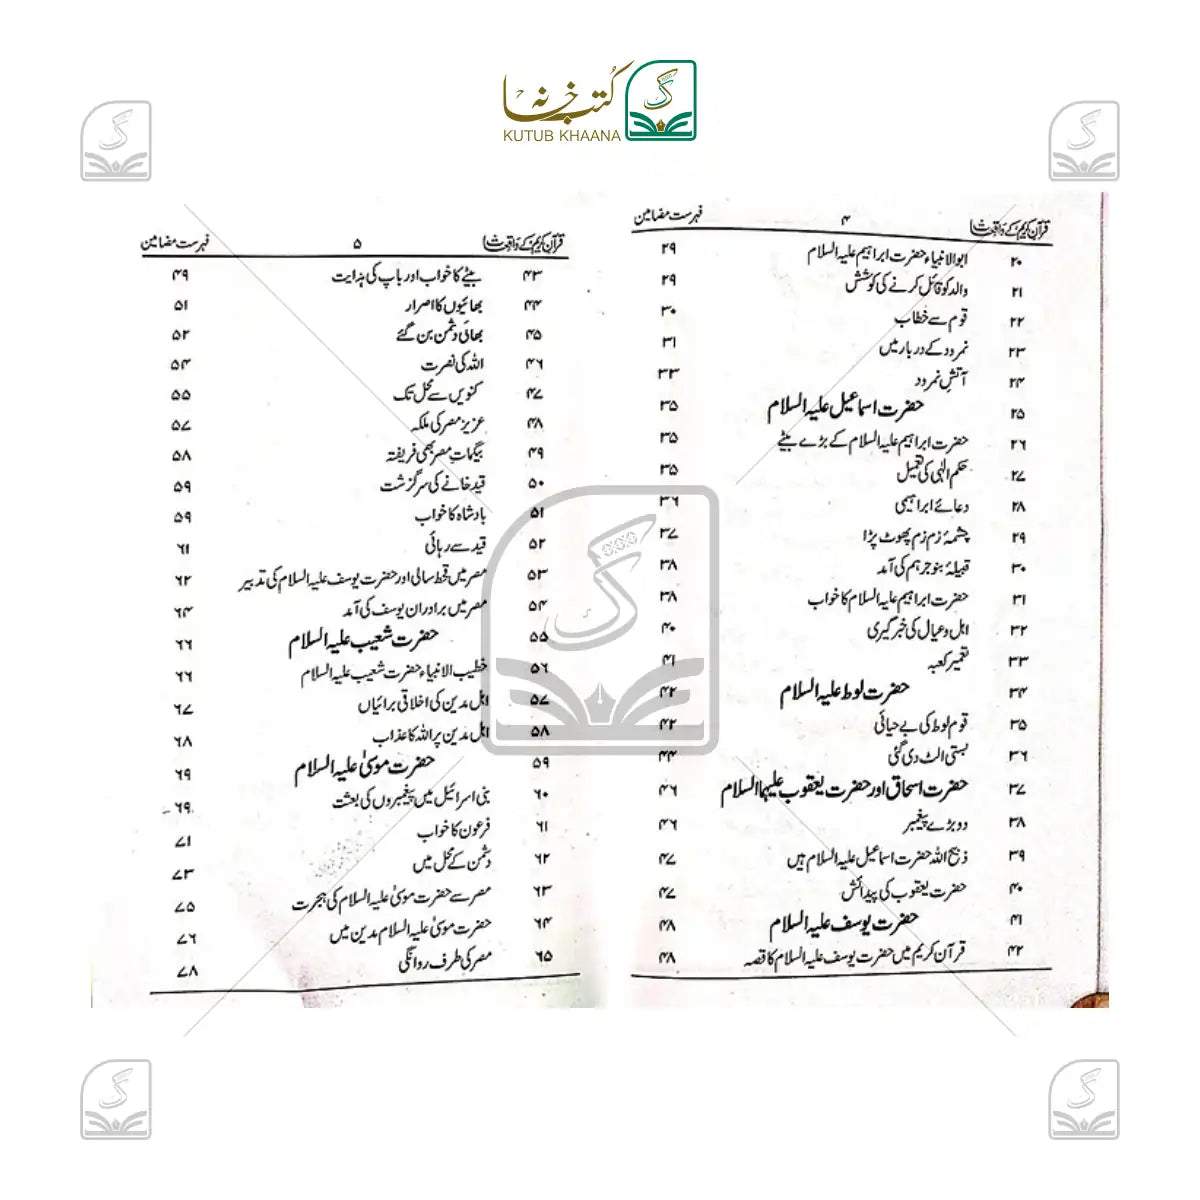 کتب خانہ
KUTUB KHAANA
قرآن کریم کے واقعات ۴ فہرست مضامین
۲۰ ابوالانبیاء حضرت ابراہیم علیہ السلام ۲۹
۲۱ والد کو قائل کرنے کی کوشش ۲۹
۲۲ قوم سے خطاب ۳۰
۲۳ نمرود کے دربار میں ۳۱
۲۴ آتشِ نمرود ۳۳
۲۵ حضرت اسماعیل علیہ السلام ۳۵
۲۶ حضرت ابراہیم علیہ السلام کے بڑے بیٹے ۳۵
۲۷ حکم الٰہی کی تعمیل ۳۵
۲۸ دعائے ابراہیمی ۳۶
۲۹ چشمۂ زم زم پھوٹ پڑا ۳۷
۳۰ قبیلۂ بنو جرہم کی آمد ۳۸
۳۱ حضرت ابراہیم علیہ السلام کا خواب ۳۸
۳۲ اہل و عیال کی خبر گیری ۴۰
۳۳ تعمیر کعبہ ۴۱
۳۴ حضرت لوط علیہ السلام ۴۲
۳۵ قوم لوط کی بے حیائی ۴۲
۳۶ بستی الٹ دی گئی ۴۴
۳۷ حضرت اسحاق اور حضرت یعقوب علیہما السلام ۴۶
۳۸ دو بڑے پیغمبر ۴۶
۳۹ ذبیح اللہ حضرت اسماعیل علیہ السلام ہیں ۴۷
۴۰ حضرت یعقوب کی پیدائش ۴۷
۴۱ حضرت یوسف علیہ السلام ۴۸
۴۲ قرآن کریم میں حضرت یوسف علیہ السلام کا قصہ ۴۸
قرآن کریم کے واقعات ۵ فہرست مضامین
۴۳ بیٹے کا خواب اور باپ کی ہدایت ۴۹
۴۴ بھائیوں کا اصرار ۵۱
۴۵ بھائی دشمن بن گئے ۵۲
۴۶ اللہ کی نصرت ۵۴
۴۷ کنویں سے محل تک ۵۵
۴۸ عزیز مصر کی ملکہ ۵۷
۴۹ بیگماتِ مصر بھی فریفتہ ۵۸
۵۰ قید خانے کی سرگزشت ۵۹
۵۱ بادشاہ کا خواب ۵۹
۵۲ قید سے رہائی ۶۱
۵۳ مصر میں قحط سالی اور حضرت یوسف علیہ السلام کی تدبیر ۶۲
۵۴ مصر میں برادران یوسف کی آمد ۶۴
۵۵ حضرت شعیب علیہ السلام ۶۶
۵۶ خطیب الانبیاء حضرت شعیب علیہ السلام ۶۶
۵۷ اہل مدین کی اخلاقی برائیاں ۶۷
۵۸ اہل مدین پر اللہ کا عذاب ۶۸
۵۹ حضرت موسیٰ علیہ السلام ۶۹
۶۰ بنی اسرائیل میں پیغمبروں کی بعثت ۶۹
۶۱ فرعون کا خواب ۷۱
۶۲ دشمن کے محل میں ۷۳
۶۳ مصر سے حضرت موسیٰ علیہ السلام کی ہجرت ۷۵
۶۴ حضرت موسیٰ علیہ السلام مدین میں ۷۶
۶۵ مصر کی طرف روانگی ۷۸